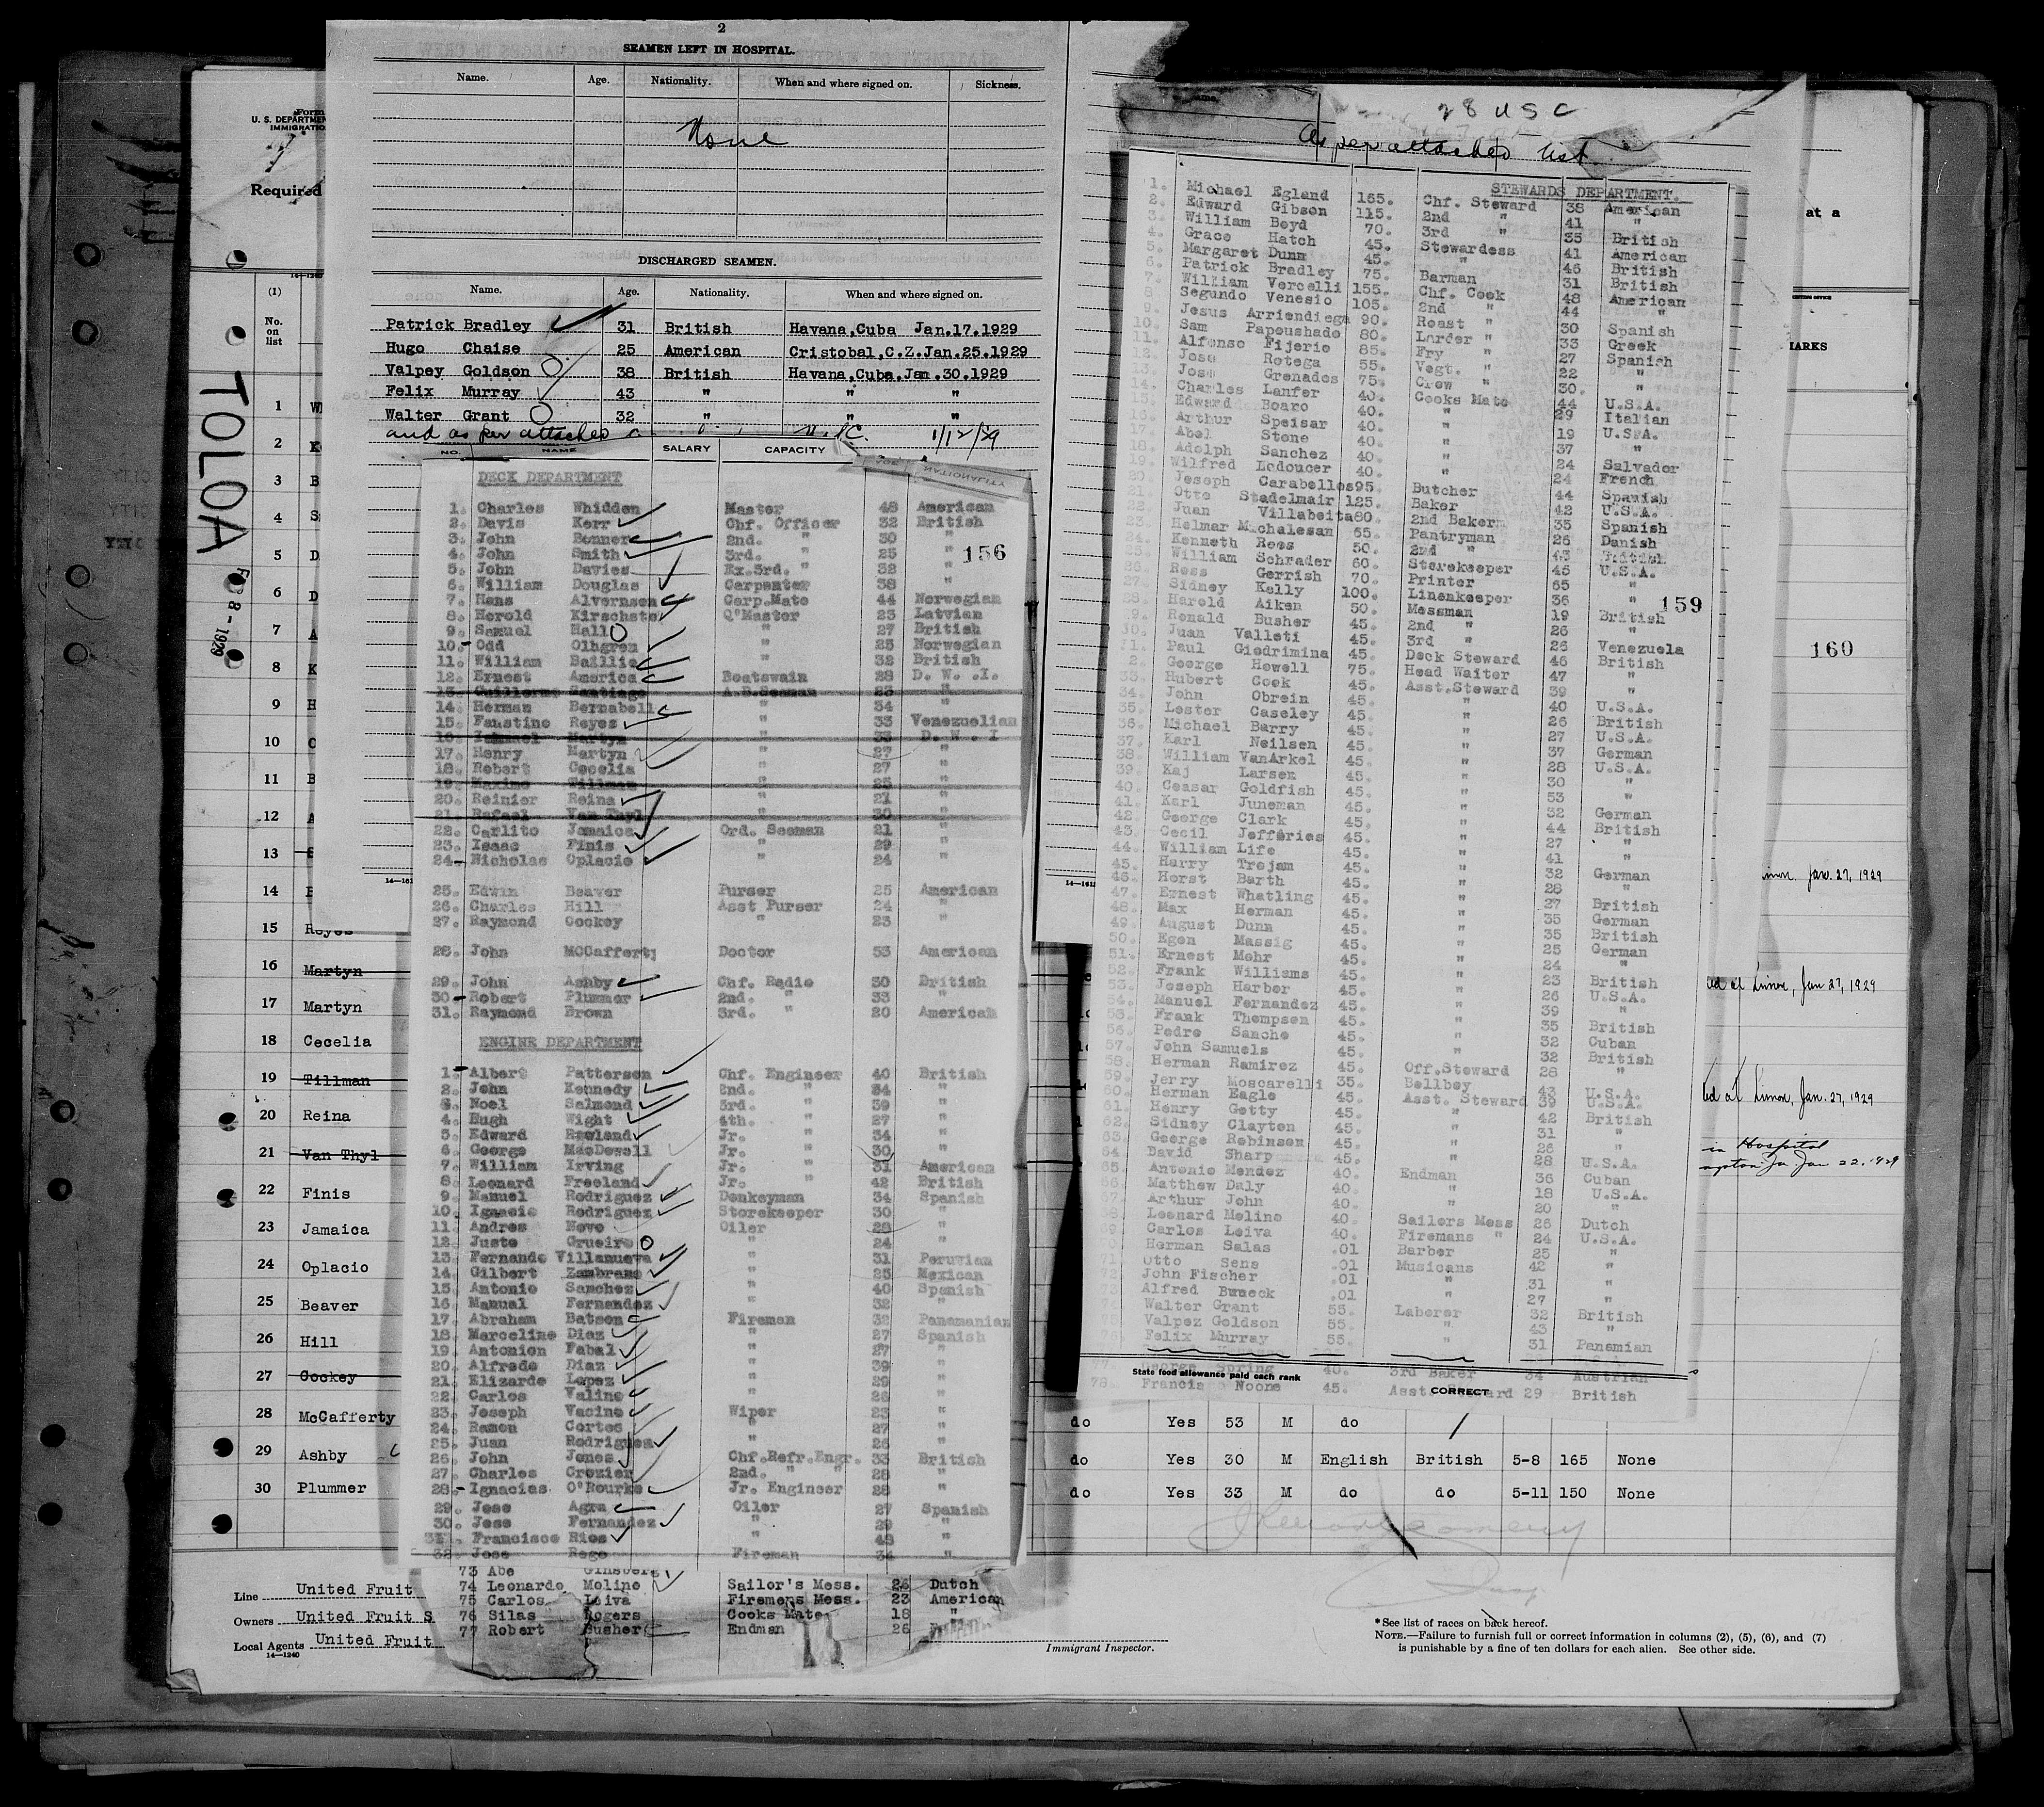 Form
U. S. DEPARTME
IMMIGRATIO
Required
TOLOA
8-1929
(1)
No.
on
list
14—1240
1
2
3
4
5
6
7
8
9
10
11
12
13
14
15
16 Martyn
17 Martyn
18 Cecelia
19 Tillman
20 Reina
21 Van Thyl
22 Finis
23 Jamaica
24 Oplacio
25 Beaver
26 Hill
27 Cockey
28 McCafferty
29 Ashby
30 Plummer
Line United Fruit
Owners United Fruit S
Local Agents United Fruit
14—1240
2
SEAMEN LEFT IN HOSPITAL.
Name. Age. Nationality. When and where signed on. Sickness.
None
DISCHARGED SEAMEN.
Name. Age. Nationality. When and where signed on.
Patrick Bradley 31 British Havana,Cuba Jan.17.1929
Hugo Chaise 25 American Cristobal,C.Z.Jan.25.1929
Valpey Goldson 38 British Havana,Cuba,Jan.30.1929
Felix Murray 43 " " "
Walter Grant 32 " " "
and as per attached
NO. NAME SALARY CAPACITY AGE NATIONALITY
DECK DEPARTMENT
1. Charles Whidden Master 48 American
2. Davis Kerr Chf. Officer 32 British
3. John Bonner 2nd. " 30 "
4. John Smith 3rd. " 25 "
156
5. John Davies Ex.3rd. " 32 "
6. William Douglas Carpenter 38 "
7. Hans Alvernsen Carp.Mate 44 Norwegian
8. Herold Kirschste Q'Master 23 Latvian
9. Samuel Hall " 27 British
10. Odd Olhgren " 25 Norwegian
11. William Baillie " 32 British
12. Ernest America Boatswain 28 D. W. .I.
13. Guillermo Santiago A.B.Seaman 23 "
14. Herman Bernabell " 34 "
15. Faustino Reyes " 33 Venezuelian
16. Martyn " 33 D. W. I
17. Henry Martyn " 27 "
18. Robert Cecelia " 27 "
19. Maximo Tillman " 25 "
20. Reinier Reina " 21 "
21. Rafael Van Thyl " 30 "
22. Carlito Jamaica Ord. Seaman 21 "
23. Isaac Finis " 29 "
24. Nicholas Oplacio " 24 "
25. Edwin Beaver Purser 25 American
26. Charles Hill Asst Purser 24 "
27. Raymond Cockey " 23 "
28. John McCafferty Doctor 53 American
29. John Ashby Chf. Radio 30 British
30. Robert Plummer 2nd. " 33 "
31. Raymond Brown 3rd. " 20 American
ENGINE DEPARTMENT
1. Albert Patterson Chf. Engineer 40 British
2. John Kennedy 2nd. " 34 "
3. Noel Salmond 3rd. " 39 "
4. Hugh Wight 4th. " 27 "
5. Edward Rowland Jr. " 34 "
6. George MacDowell Jr. " 30 "
7. William Irving Jr. " 31 American
8. Leonard Freeland Jr. " 42 British
9. Manuel Rodriguez Donkeyman 34 Spanish
10. Ignacio Rodriguez Storekeeper 30 "
11. Andres Novo Oiler 28 "
12. Justo Grueiro " 24 "
13. Fernando Villanueva " 31 Peruvian
14. Gilbert Zambrano " 25 Mexican
15. Antonio Sanchez " 40 Spanish
16. Manual Fernandez " 32 "
17. Abraham Batson Fireman 32 Panamanian
18. Marceline Diaz " 27 Spanish
19. Antonion Fabal " 27 "
20. Alfredo Diaz " 39 "
21. Elizardo Lopez " 29 "
22. Carlos Valino " 26 "
23. Joseph Vacino Wiper 23 "
24. Ramon Cortes " 27 "
25. Juan Rodriguez " 26 "
26. John Jones Chf.Refr.Engr. 33 British
27. Charles Crozier 2nd. " " 28 "
28. Ignacias O'Rourke Jr. Engineer 28 "
29. Jose Agra Oiler 27 Spanish
30. Jose Fernandez " 29 "
31. Francisco Rios " 48 "
32. Jose Rego Fireman 34 "
73 Abe Ginsberg
74 Leonardo Molino Sailor's Mess. 26 Dutch
75 Carlos Leiva Firemens Mess. 23 American
76 Silas Rogers Cooks Mate 18 "
77 Robert Busher Endman 26
28 USC
As per attached list
STEWARDS DEPARTMENT.
1. Michael Egland 165. Chf. Steward 38 American
2. Edward Gibson 115. 2nd " 41 "
3. William Boyd 70. 3rd " 35 British
4. Grace Hatch 45. Stewardess 41 American
5. Margaret Dunn 45. " 46 British
6. Patrick Bradley 75. Barman 31 British
7. William Vercelli 155. Chf. Cook 48 American
8 Segundo Venesio 105. 2nd " 44 "
9. Jesus Arriendiega 90. Roast " 30 Spanish
10. Sam Papoushado 80. Larder " 33 Greek
11. Alfonso Fijerio 85. Fry " 27 Spanish
12. Jose Rotega 55. Vegt. " 22 "
13. Jose Grenados 75. Crew " 30. "
14. Charles Lanfer 40. Cooks Mate 44 U.S.A.
15. Edward Boaro 40. " 29 Italian
16. Arthur Speisar 40. " 19 U.S.A.
17. Abel Stone 40. " 37 "
18. Adolph Sanchez 40. " 24 Salvador
19. Wilfred Ledoucer 40. " 24 French
20. Joseph Carabellos 95. Butcher 44 Spanish
21. Otto Stadelmair 125. Baker 42 U.S.A.
22. Juan Villabeita 80. 2nd Baker 35 Spanish
23. Helmar Michalesan 65. Pantryman 26 Danish
24. Kenneth Rees 50. 2nd " 43 British
25. William Schrader 60. Storekeeper 45 U.S.A.
26. Ross Gerrish 70. Printer 65 "
27. Sidney Kelly 100. Linenkeeper 36 "
159
28. Harold Aiken 50. Messman 19 British
29. Ronald Busher 45. 2nd " 26 "
30. Juan Valleti 45. 3rd " 26 Venezuela
31. Paul Giedrimina 45. Deck Steward 46 British
2. George Howell 75. Head Waiter 47 "
33. Hubert Cook 45. Asst.Steward 39 "
34. John Obrein 45. " 40 U.S.A.
35. Lester Caseley 45. " 26 British
36. Michael Barry 45. " 27 U.S.A.
37. Karl Neilsen 45. " 37 German
38 William VanArkel 45. " 28 U.S.A.
39. Kaj Larsen 45. " 30 "
40. Ceasar Goldfish 45. " 53 "
41. Karl Juneman 45. " 32 German
42. George Clark 45. " 44 British
43. Cecil Jefferies 45. " 27 "
44. William Life 45. " 41 "
45. Harry Trojam 45. " 32 German
46. Horst Barth 45. " 28 "
47. Ernest Whatling 45. " 27 British
48. Max Herman 45. " 35 German
49. August Dunn 45. " 35 British
50. Egon Massig 45. " 25 German
51. Ernest Mohr 45. " 24 "
52. Frank Williams 45. " 23 British
53. Joseph Harber 45. " 26 U.S.A.
54. Manuel Fernandez 45. " 39 "
55. Frank Thompson 45. " 35 British
56. Pedro Sancho 45. " 32 Cuban
57. John Samuels 45. " 32 British
58. Herman Ramirez 45. Off.Steward 28 "
59. Jerry Moscarelli 35. Bellboy 43 U.S.A.
60. Herman Eagle 45. Asst. Steward 39 U.S.A.
61. Henry Getty 45. " 42 British
62. Sidney Clayton 45. " 31 "
63. George Robinson 45. " 26 "
64. David Sharp 45. " 28 U.S.A.
65. Antonio Mendez 40. Endman 36 Cuban
66. Matthew Daly 40. " 18 U.S.A.
67. Arthur John 40. " 20 "
68. Leonard Moline 40. Sailors Mess 26 Dutch
69. Carlos Leiva 40. Firemans " 24 U.S.A.
Herman Salas .01 Barber 25 "
71 Otto Sens .01 Musicans 42 "
72 John Fischer .01 " 31 "
73 Alfred Buneck .01 " 27 "
Walter Grant 55. Laborer 32 British
Valpez Goldson 55. " 43 "
Felix Murray 55. " 31 Panamian
77. George Spring 40. 3rd Baker 34 Austrian
State food allowance paid each rank CORRECT
78. Francis Noone 45. Asst. Steward 29 British
at a
MARKS
160
Limon, Jan. 27, 1929
ed at Limon, Jan 27, 1929
ed at Limon, Jan. 27, 1929
in Hospital
Jan 22, 1929
do Yes 53 M do
do Yes 30 M English British 5-8 165 None
do Yes 33 M do do 5-11 150 None
Immigrant Inspector.
*See list of races on back hereof.
NOTE.—Failure to furnish full or correct information in columns (2), (5), (6), and (7)
is punishable by a fine of ten dollars for each alien. See other side.